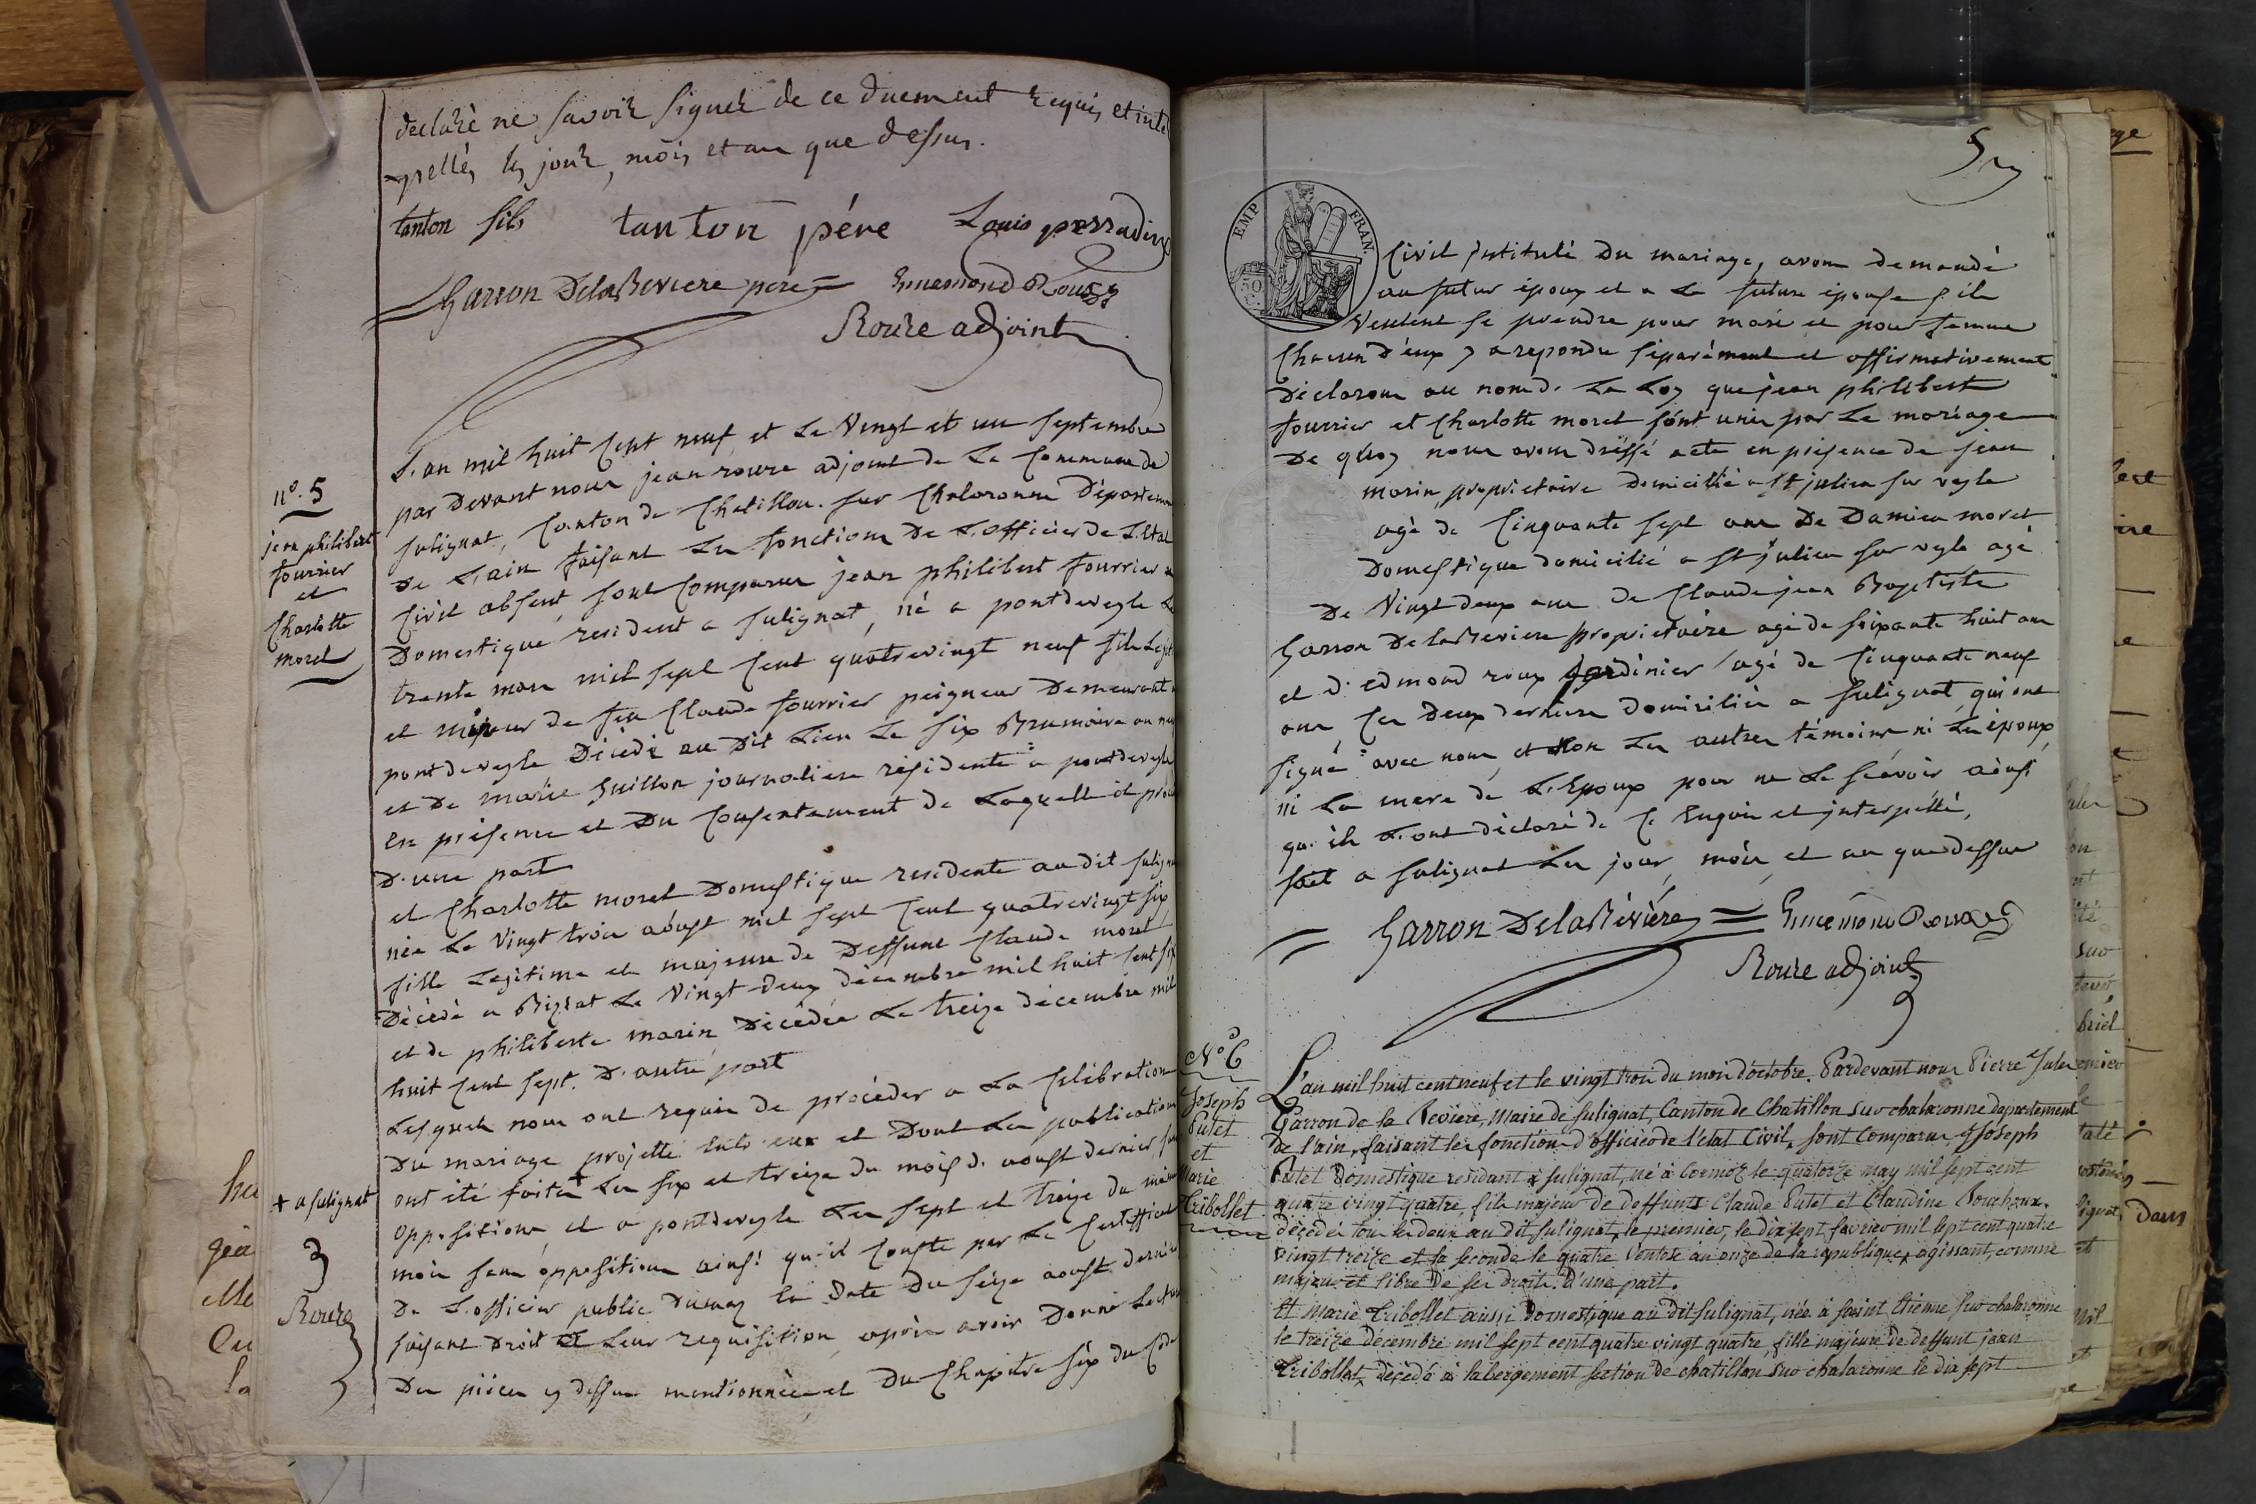 declaré ne savoir signer de ce duement requis et inte
pellés les jour, mois et an que dessus.
tanton fils tanton pére Louis perradin
Garron Delabeviere pere Ennemond Roux
Roure adjoint
nº. 5
jean philibert
fourrier
et
Charlotte
morel
L'an mil huit Cent neuf et Le Vingt et un septembre
par Devant nous jean roure adjoint de La Commune de
sulignat, Canton de Chatillon sur Chalaronne Départeme
De L'ain faisant Les fonctions De L'officier de L'état
Civil absent, sont Comparus jean philibert fourrier
Domestique resident a sulignat, né a pontdeveyle Le
trente mars mil sept Cent quatrevingt neuf fils Légit
et mineur de feu Claude fourrier peigneur Demeurant
pontdeveyle Décédé au Dit Lieu Le six Brumaire an
et De marie Guillon journaliere résidente a pontdeveyle
en présence et Du Consentement de Laquelle il
D'une part
et Charlotte morel Domestique residente au dit sulign
née Le Vingt trois aoust mil sept Cent quatrevingt six
fille Legitime et majeure de Deffunt Claude morel
Décédé a Biziat Le Vingt deux décembre mil huit Cent six
et de philiberte marin Décédée Le treize décembre mil
huit Cent sept. D'autre part
Lesquels nous ont requis de procéder a La Célébration
Du mariage projetté entr'eux et Dont Les publications
ont été faites + Les six et treize du mois d'aoust dernier
opposition, et a pontdeveyle Les sept et treize du même
mois sans opposition ainsi qu'il Conste par Le Certifficat
De L'officier public en Date Du seize aoust dernier
faisant Droit a Leur requisition, après avoir Donné Lecture
Des pièces cy dessus mentionnées et Du Chapitre six du Code
+ a sulignat
Roure
5
EMP. FRAN.
50 C.
Civil intitulé Du mariage, avons demandé
au futur époux et a La future épouse s'ils
Veulent se prendre pour mari et pour femme
Chacun d'eux a repondu séparément et affirmativement
Déclarons au nom de La Loy que jean philibert
fourrier et Charlotte morel sont unis par Le mariage
De quoy nous avons dressé acte en présence de jean
marin proprietaire Domicilié a St julien sur veyle
agé de Cinquante sept ans De Damien morel
Domestique domicilié a St julien sur veyle agé
De Vingt deux ans de Claude jean Baptiste
Garron Delabeviere proprietaire agé de soixante huit ans
et d'edmond roux jardinier agé de Cinquante neuf
ans Ces Deux derniers Domiciliés a sulignat qui ont
signé avec nous, et non Les autres témoins ni Les époux
ni La mere de L'Epoux pour ne Le sçavoir ainsi
qu'ils L'ont déclaré de Ce Enquis et interpéllé,
fait a sulignat Les jour, mois, et an que dessus
Garron Delabévière Ennemond Roux
Roure adjoint
Nº 6
Joseph
Putet
et
Marie
Tribollet
L'an mil huit cent neuf et le vingt trois du mois d'octobre. Pardevant nous Pierre Jules
Garron de la Beviere, Maire de sulignat, Canton de Chatillon sur chalaronne département
de l'ain, faisant les fonctions d'officier de l'état Civil, sont Comparus Joseph
Putet Domestique residant a sulignat, né à Cormoz le quatorze may mil sept cent
quatre vingt quatre, fils majeur de deffunts Claude Putet et Claudine Bouchoux.
décédés tous les deux au dit sulignat, le premier, le dix sept fevrier mil sept cent quatre
vingt treize et la seconde le quatre Ventose an onze de la republique, agissant, comme
majeur et libre de ses droits. d'une part.
Et Marie Tribollet aussi domestique au dit sulignat, née à saint Etienne sur chalaronne
le treize décembre mil sept cent quatre vingt quatre, fille majeure de deffunt jean
Tribollet, décédé à labergement section de chatillon sur chalaronne le dix sept